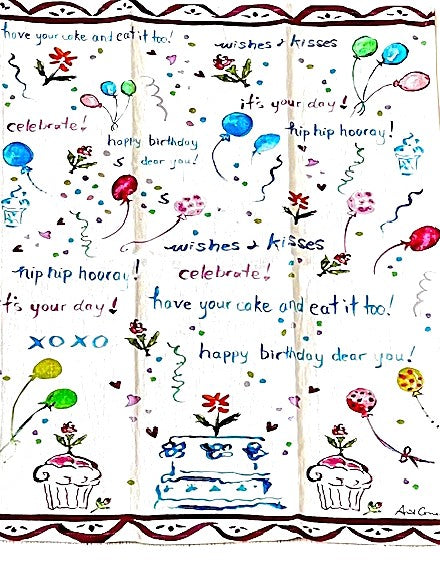 have your cake and eat it too!
wishes & kisses
it's your day!
celebrate!
hip hip hooray!
happy birthday
dear you!
wishes & kisses
hip hip hooray!
celebrate!
it's your day!
have your cake and eat it too!
XOXO
happy birthday dear you!